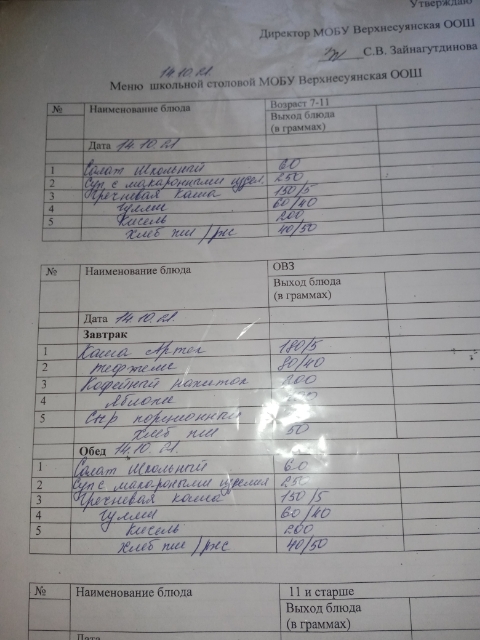 Утверждаю
Директор МОБУ Верхнесуянская ООШ
С.В. Зайнагутдинова
14.10.21.
Меню школьной столовой МОБУ Верхнесуянская ООШ
№ Наименование блюда Возраст 7-11
Выход блюда
(в граммах)
Дата 14.10.21
1 Салат школьный 60
2 Суп с макаронными издел. 250
3 Гречневая каша 150/5
4 Гуляш 60/40
5 Кисель 200
хлеб пш/рж 40/50
№ Наименование блюда ОВЗ
Выход блюда
(в граммах)
Дата 14.10.21.
Завтрак
1 Каша Артек 180/5
2 80/40
3 Кофейный напиток 200
4 Яблоки
5 Сыр порционный
хлеб пш 50
Обед 14.10.21.
1 Салат школьный 60
2 Суп с макаронными изделия 250
3 Гречневая каша 150/5
4 Гуляш 60/40
5 Кисель 200
хлеб пш/рж 40/50
№ Наименование блюда 11 и старше
Выход блюда
(в граммах)
Дата